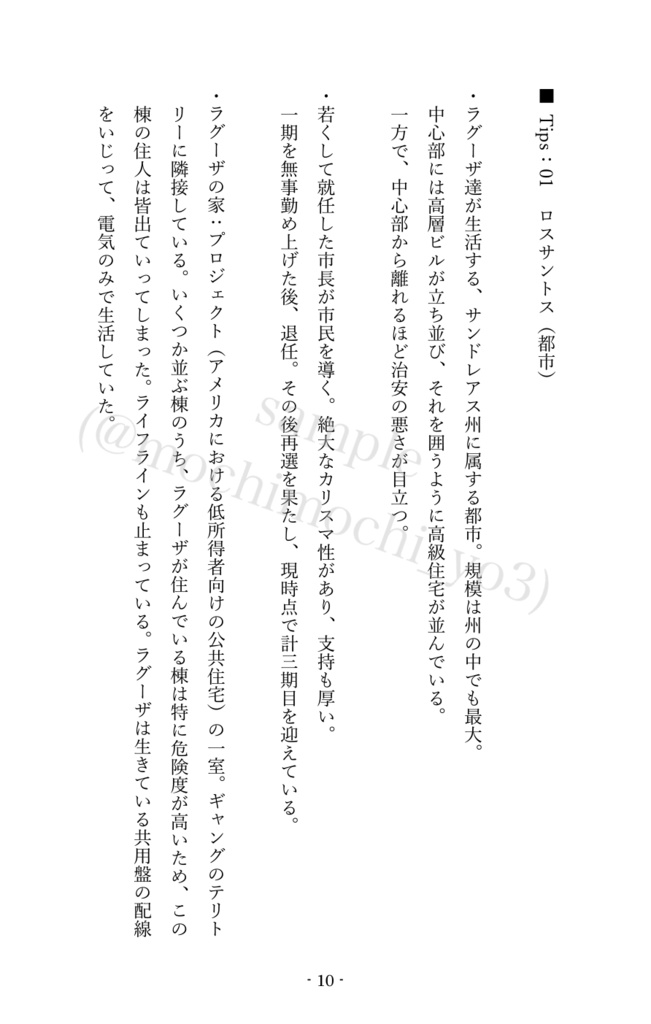 ■ Tips：01　ロスサントス（都市）
・ラグーザ達が生活する、サンドレアス州に属する都市。規模は州の中でも最大。
中心部には高層ビルが立ち並び、それを囲うように高級住宅が並んでいる。
一方で、中心部から離れるほど治安の悪さが目立つ。
・若くして就任した市長が市民を導く。絶大なカリスマ性があり、支持も厚い。
一期を無事勤め上げた後、退任。その後再選を果たし、現時点で計三期目を迎えている。
・ラグーザの家：プロジェクト（アメリカにおける低所得者向けの公共住宅）の一室。ギャングのテリト
リーに隣接している。いくつか並ぶ棟のうち、ラグーザが住んでいる棟は特に危険度が高いため、この
棟の住人は皆出ていってしまった。ライフラインも止まっている。ラグーザは生きている共用盤の配線
をいじって、電気のみで生活していた。
sample
(@mochimochi_yo3)
- 10 -